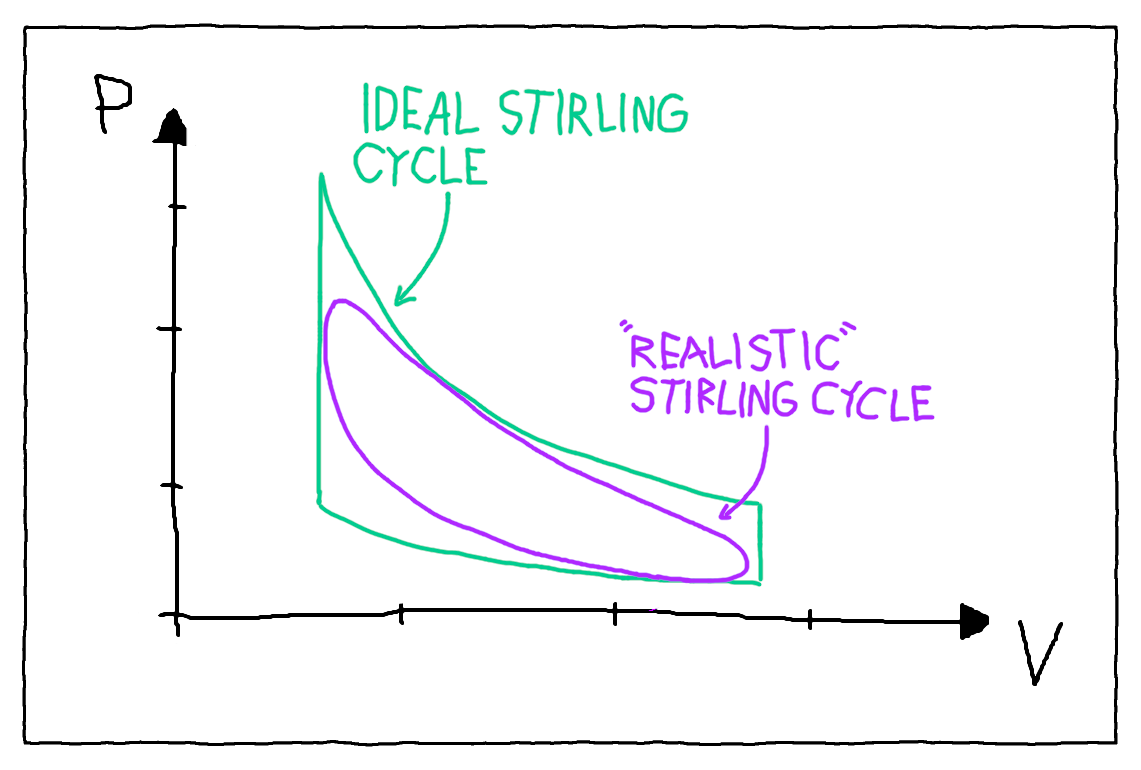 P
IDEAL STIRLING
CYCLE
"REALISTIC"
STIRLING CYCLE
V